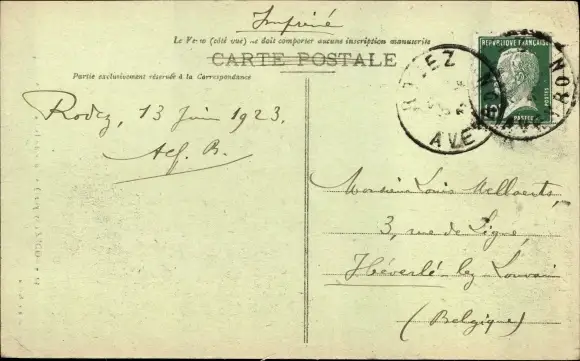 Imprimé
Le Verso (côté vue) ne doit comporter aucune inscription manuscrite
CARTE POSTALE
Partie exclusivement réservée à la Correspondance
RODEZ
AVEYRON
REPUBLIQUE FRANÇAISE
10
POSTES
Rodez, 13 Juin 1923.
Alf. B.
Monsieur Louis Mellaerts,
3, rue de Ligne,
Héverlé-lez Louvain
(Belgique)